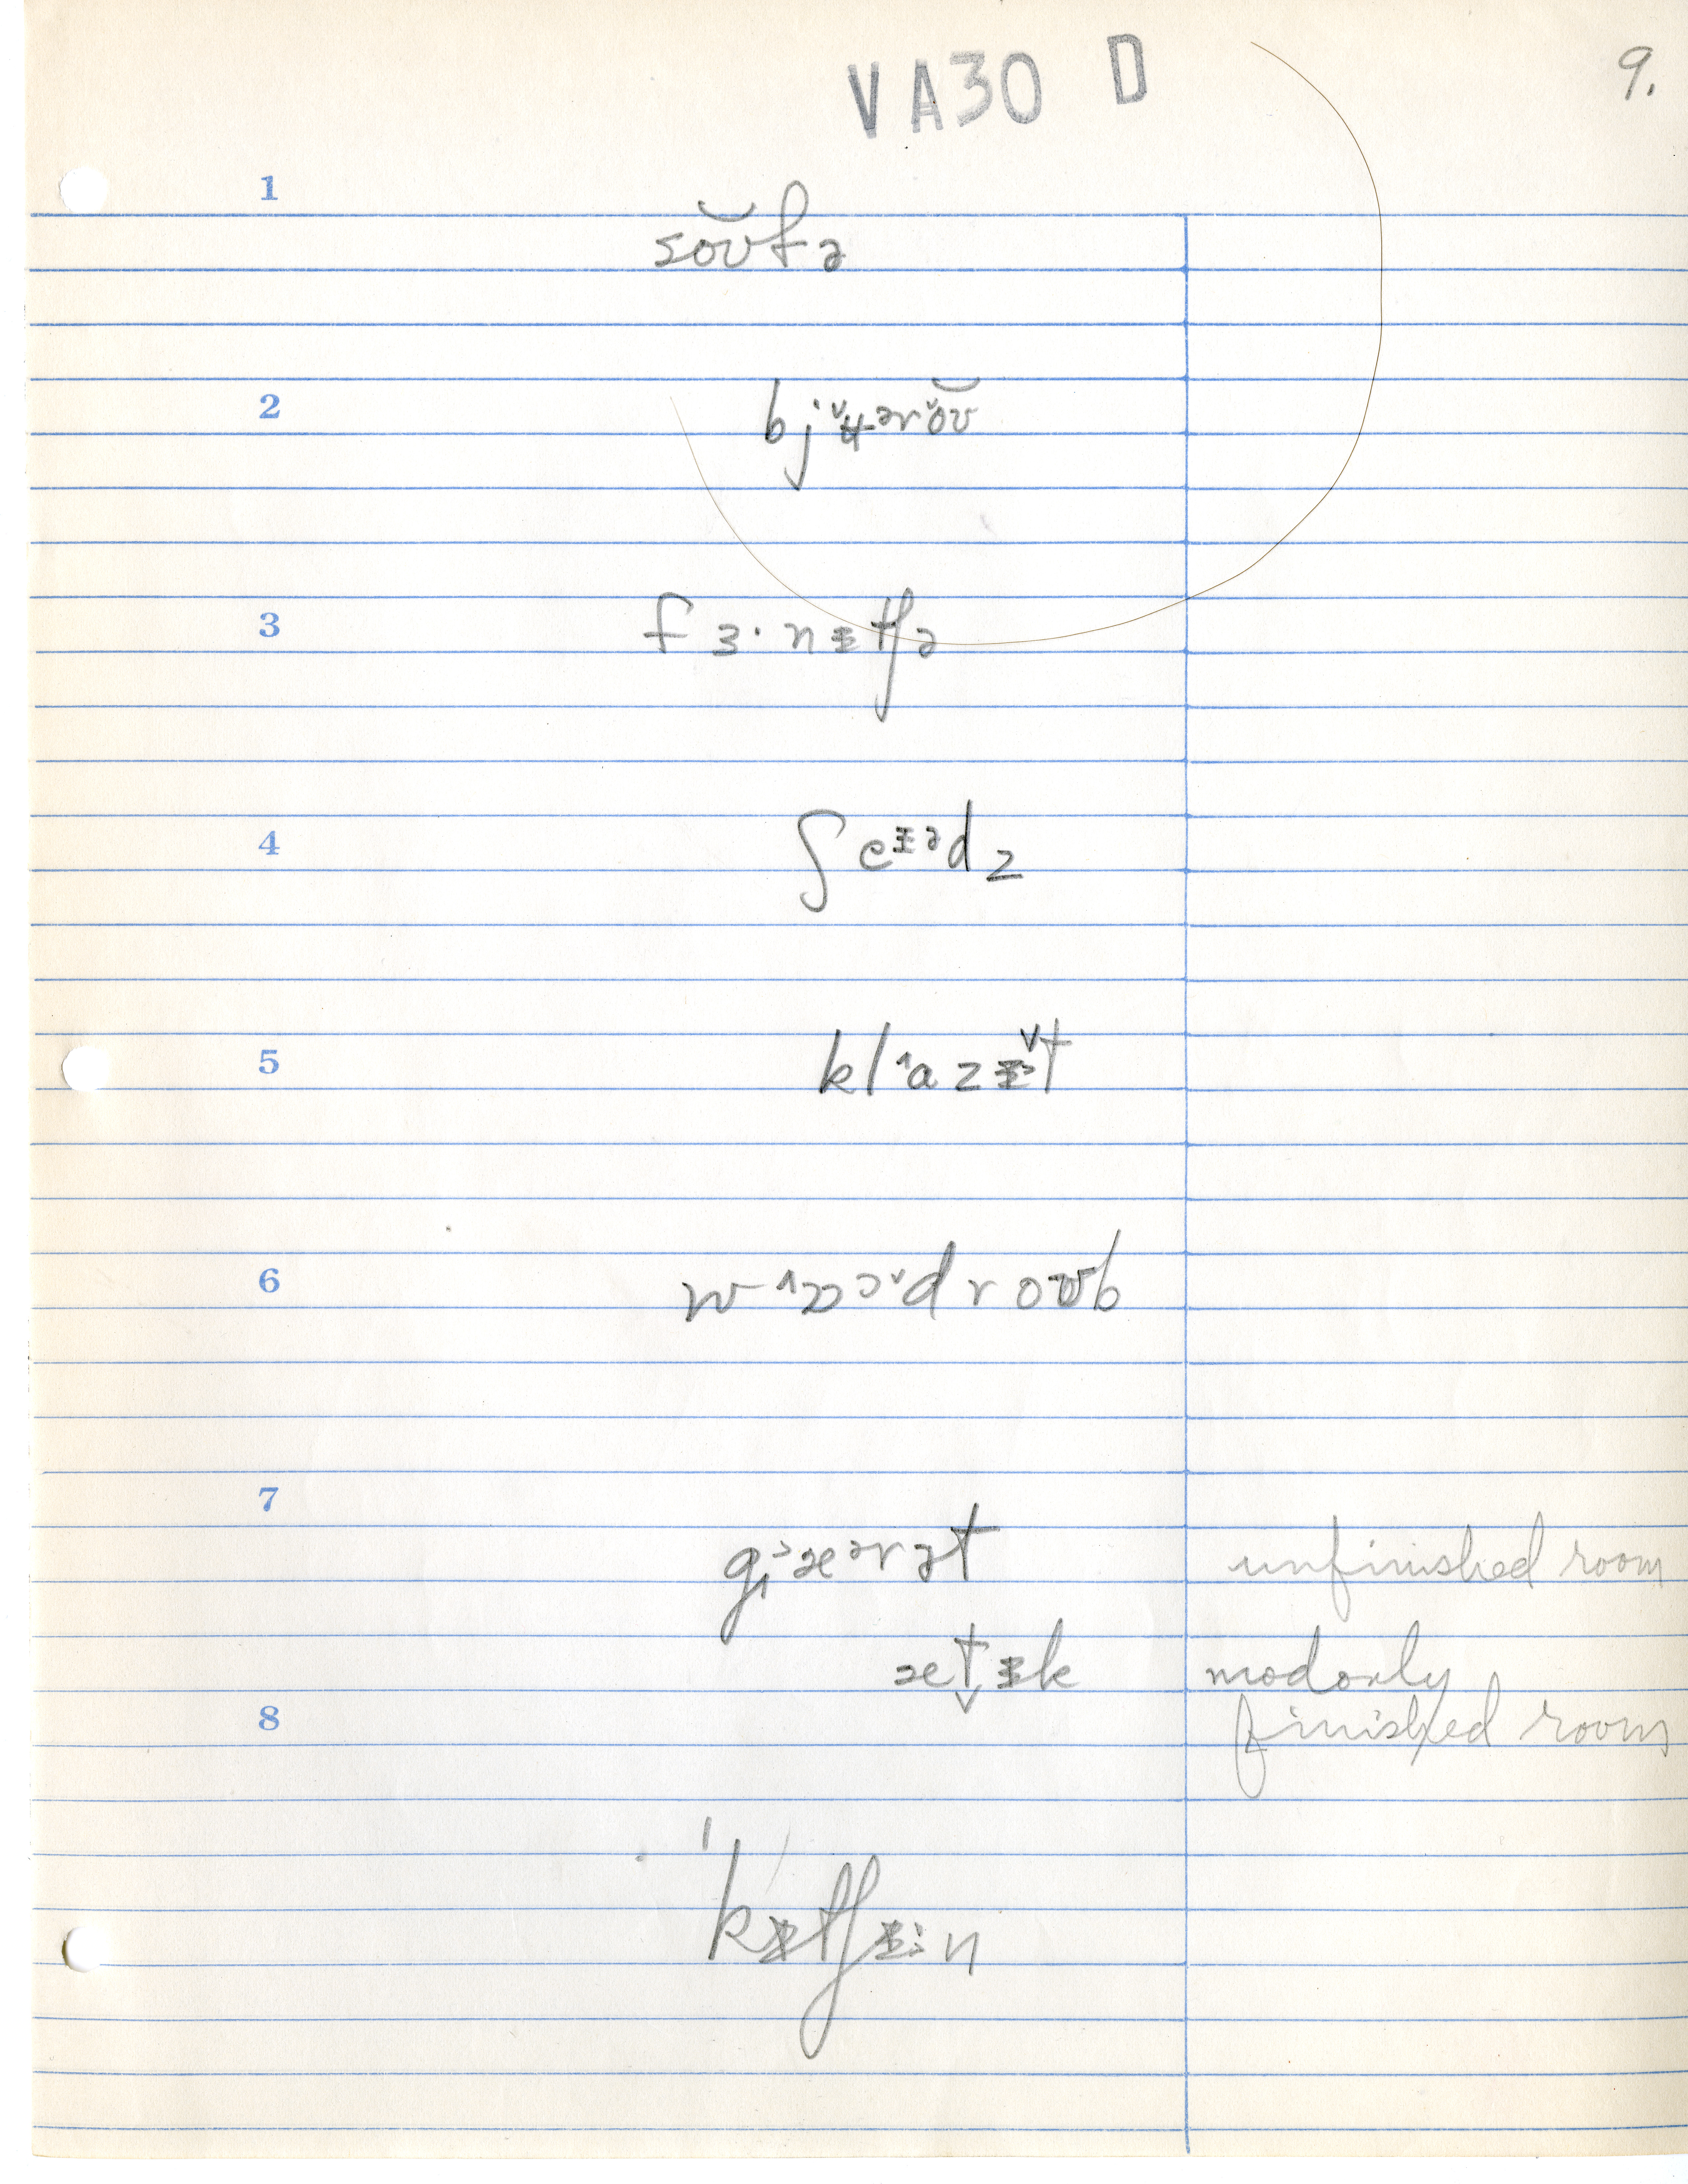 VA30 D
9.
1
so͝ʊfə
2
bjʉ˅ᵊro͝ʊ
3
fɜ·nɪ̵tʃə
4
ʃeɪ̵ᵊdz
5
kl˄azɪ̵˅t
6
w˄ɒɔ˅droʊb
7
g˃æᵊrət unfinished room
ætɪ̵k mod only
8
finished room
ˈkɪ̵tʃɪ̵:n